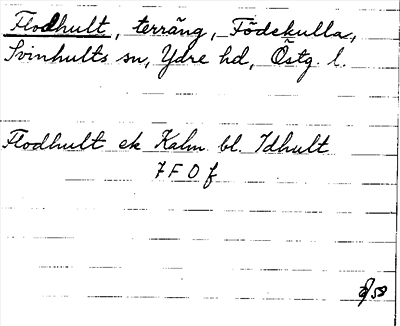 Flodhult, terräng, Födekulla,
Svinhults sn, Ydre hd, Östg. l.
Flodhult ek Kalm bl. Idhult
7 F 0 f